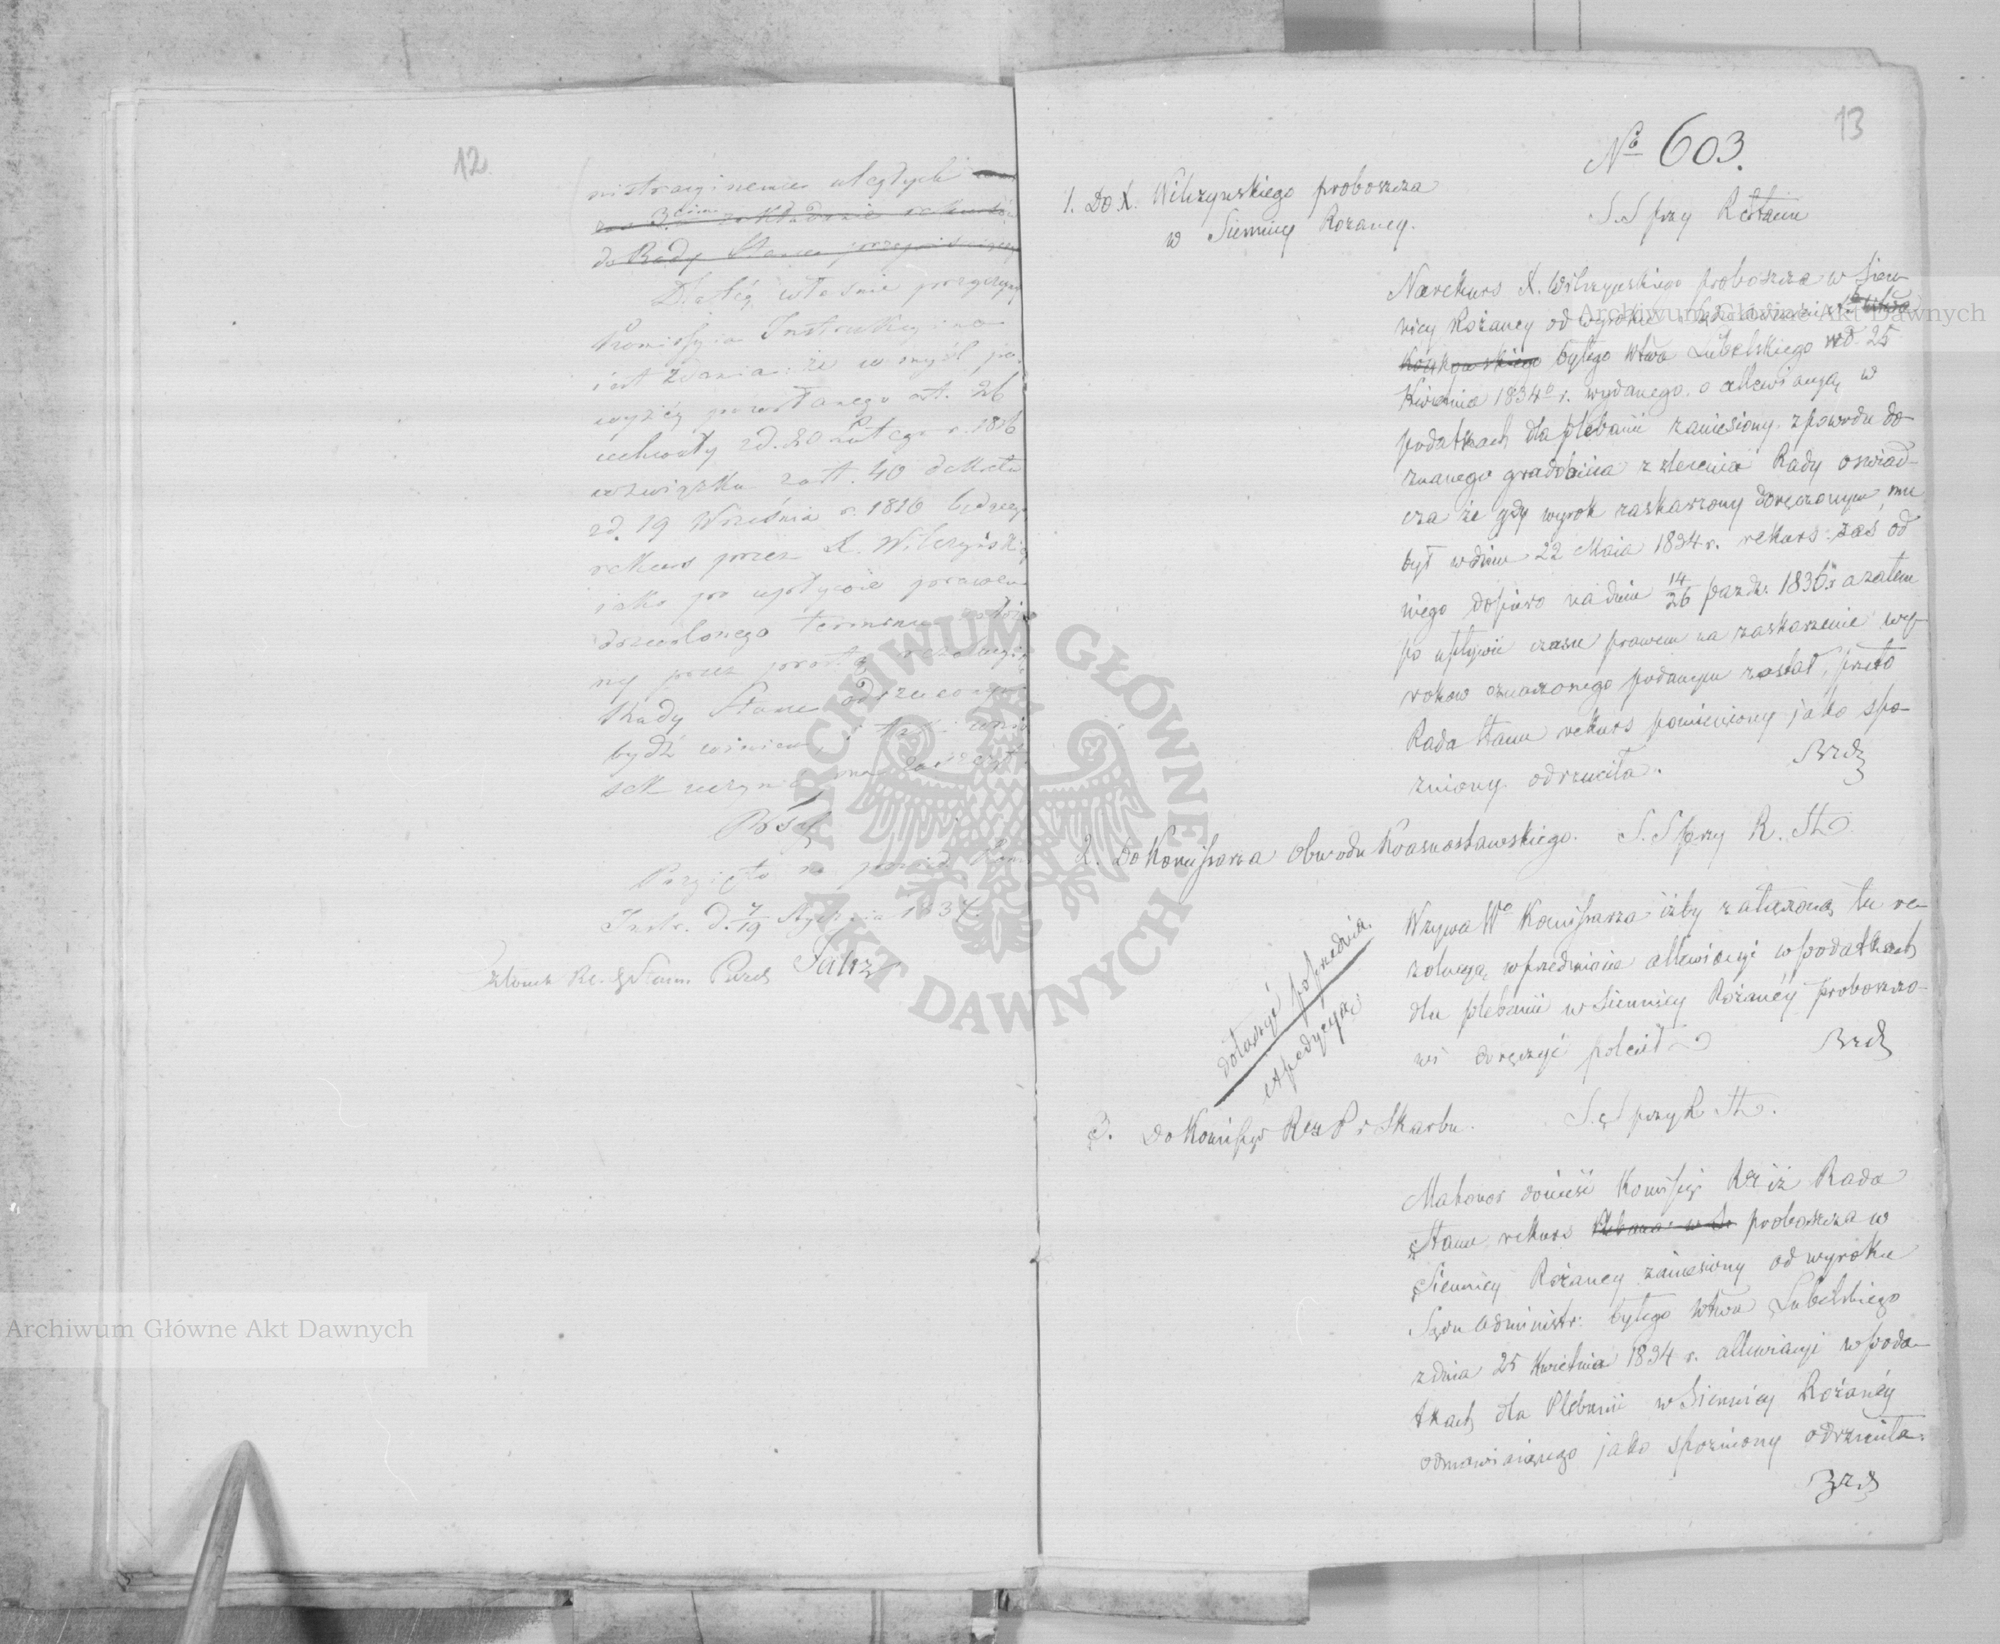 12
nistracyinemu uległych
do Rady Stanu
Dlatej właśnie przyczyny
Kommissyia Instrukcyina
iest zdania: że w myśl po
wyżey powołanego art. 26
uchwały z d. 20 Lutego r. 1816
w związku z art. 40 dekretu
z d. 19 Września r. 1810 będący
rekurs przez X. Wilczyńskie
iako po upływie prawem
ozeczonego terminu
ny przez prostą rezolucyią
Rady Stanu odrzuconym
bydź winien, i taki wnio
sek uczynić ma zaszczyt
Przyięto na posied. Kom.
Instr. d. 7/19 Stycznia 1837.
13
No 603.
1. Do X. Wilczynskiego proboszcza
w Siennicy Rożaney.
S. S przy R Stanu
Na rekurs X. Wilczynskiego proboszcza w Sien-
nicy Rożaney od wyroku Sądu
byłego Wtwa Lubelskiego w d. 25
Kwietnia 1834o r. wydanego, o allewiacyą w
podatkach dla plebanii zaniesiony z powodu do-
znanego gradobicia z zlecenia Rady oswiad-
cza że gdy wyrok zaskarżony doręczonym mu
był w dniu 22 Maia 1834 r. rekurs zaś od
niego dopiero na dniu 14/26 Pazdr. 1836 r. a zatem
po upływie czasu prawem na zaskarżenie wy-
rokow oznaczonego podanym został, przeto
Rada Stanu rekurs pomieniony jako spo-
zniony odrzuciła.
2. Do Komisarza Obwodu Krasnostawskiego. S. S przy R. St.
Wzywa Wo Komisarza iżby załączoną tu re-
zolucyą w przedmiocie allewiacyi w podatkach
dla plebanii w Siennicy Rożaney proboszczo-
wi doręczyć polecił
dołączyć poprzednią
expedycyą
3. Do Komisyi Rzą P i Skarbu. S. S przy R St.
Ma honor donieść Komisyi Rz iż Rada
Stanu rekurs Plebana w Si proboszcza w
Siennicy Rożaney zaniesiony od wyroku
Sądu Administr: byłego Wtwa Lubelskiego
z dnia 25 Kwietnia 1834 r. allewiacyi w poda-
tkach dla Plebanii w Siennicy Rożaney
odmawiaiącego jako spozniony odrzuciła.
Archiwum Główne Akt Dawnych
Archiwum Główne Akt Dawnych
ARCHIWUM GŁÓWNE AKT DAWNYCH